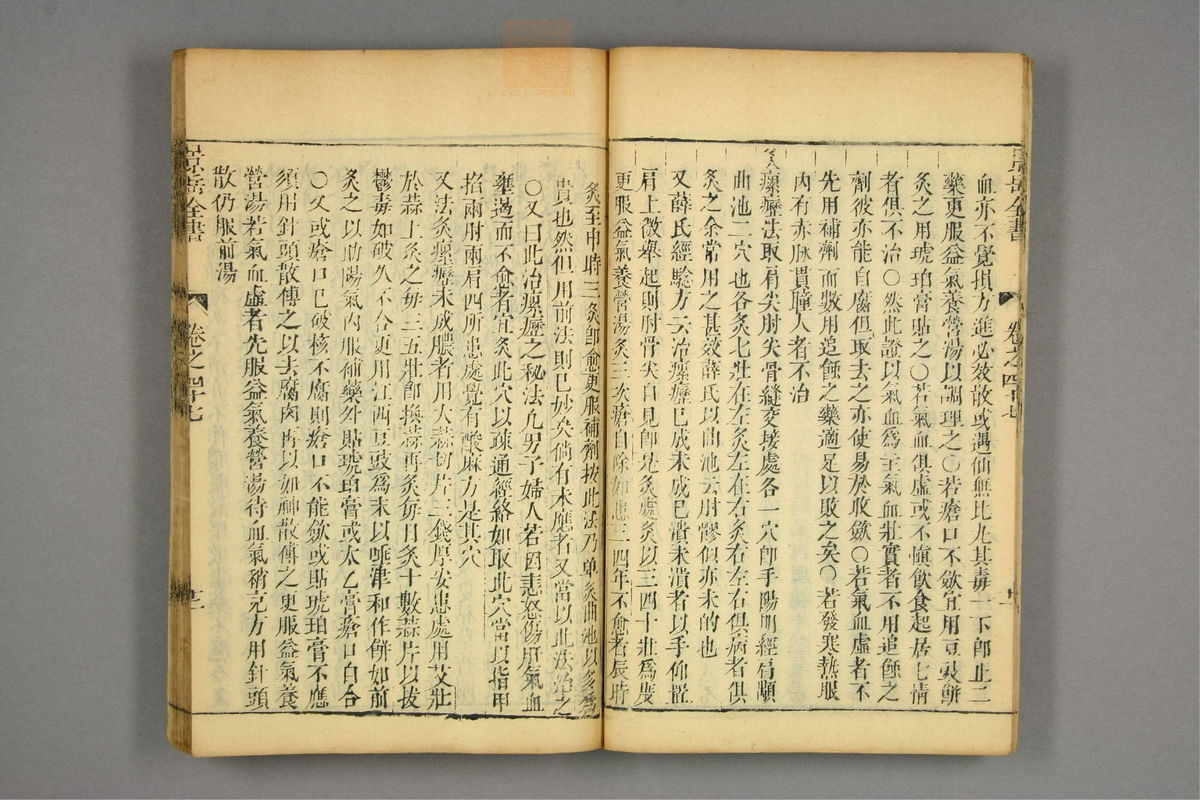 景岳全書
卷之四十七
血亦不覺損方進必效散或遇仙無比丸其毒一下卽止二
藥更服益氣養營湯以調理之〇若瘡口不斂宜用豆豉餅
灸之用琥珀膏貼之〇若氣血俱虛或不愼飲食起居七情
者俱不治〇然此證以氣血爲主氣血壯實者不用追蝕之
劑彼亦能自腐但取去之亦使易於收斂〇若氣血虛者不
先用補劑而數用追蝕之藥適足以敗之矣〇若發寒熱服
內有赤脉貫瞳人者不治
灸瘰癧法取肩尖肘尖骨縫交接處各一穴卽手陽明經肩顒
曲池二穴也各灸七壯在左灸左在右灸右左右俱病者俱
灸之余常用之甚效薛氏以曲池云肘髎似亦未的也
又薛氏經驗方云治瘰癧已成未成已潰未潰者以手仰置
肩上微舉起則肘骨尖自見卽是灸處灸以三四十壯爲度
更服益氣養營湯灸三次瘡自除如患三四年不愈者辰時
灸至申時三灸卽愈更服補劑按此法乃单灸曲池以多爲
貴也然但用前法則已妙矣倘有未應者又當以此法治之
〇又曰此治瘰癧之秘法凡男子婦人若因悲怒傷肝氣血
壅遏而不愈者宜灸此穴以疎通經絡如取此穴當以指甲
掐兩肘兩肩四所患處覺有酸麻方是其穴
又法灸瘰癧未成膿者用大蒜切片三錢厚安患處用艾壯
於蒜上灸之每三五壯卽換蒜再灸每日灸十數蒜片以拔
鬱毒如破久不合更用江西豆豉爲末以唾津和作餅如前
灸之以助陽氣內服補藥外貼琥珀膏或太乙膏瘡口自合
〇又或瘡口已破核不腐則瘡口不能斂或貼琥珀膏不應
須用針頭散傅之以去腐肉再以如神散傅之更服益氣養
營湯若氣血虛者先服益氣養營湯待血氣稍充方用針頭
散仍服前湯
景岳全書
卷之四十七